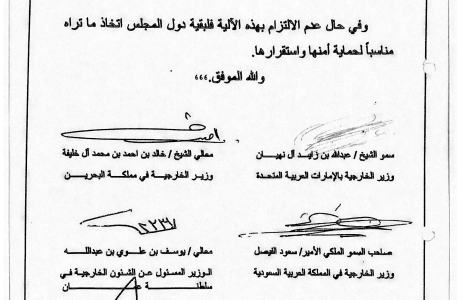 وفي حال عدم الالتزام بهذه الآلية فلبقية دول المجلس اتخاذ ما تراه
مناسباً لحماية أمنها واستقرارها.
والله الموفق،،،
سمو الشيخ / عبدالله بن زايد آل نهيان
وزير الخارجية بالإمارات العربية المتحدة
معالي الشيخ / خالد بن احمد بن محمد آل خليفة
وزير الخارجية في مملكة البحرين
صاحب السمو الملكي الأمير/ سعود الفيصل
وزير الخارجية في المملكة العربية السعودية
معالي / يوسف بن علوي بن عبدالله
الوزير المسئول عن الشئون الخارجية في
سلطنة عمان